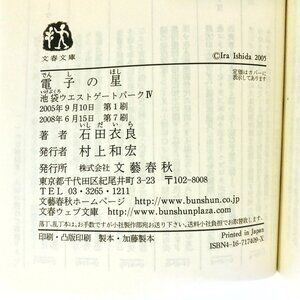 文春文庫
©Ira Ishida 2005
定価はカバーに
表示してあります
でんし ほし
電子の星
いけぶくろ
池袋ウエストゲートパークⅣ
2005年9月10日 第1刷
2008年6月15日 第7刷
いしだいら
著者 石田衣良
発行者 村上和宏
発行所 株式会社 文藝春秋
東京都千代田区紀尾井町3-23 〒102-8008
TEL 03・3265・1211
文藝春秋ホームページ http://www.bunshun.co.jp
文春ウェブ文庫 http://www.bunshunplaza.com
落丁、乱丁本は、お手数ですが小社製作部宛お送り下さい。送料小社負担でお取替致します。
印刷・凸版印刷 製本・加藤製本
Printed in Japan
ISBN4-16-717409-X